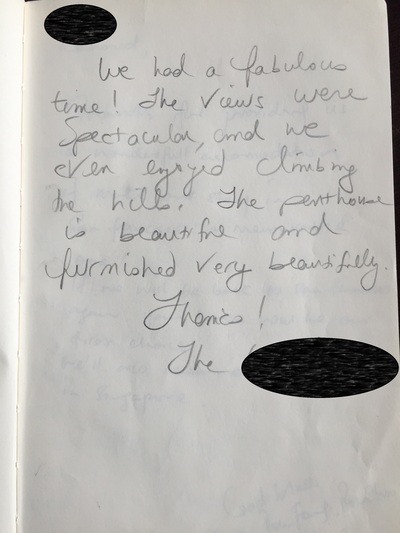 We had a fabulous
time! The views were
Spectacular, and we
even enjoyed climbing
the hills. The penthouse
is beautiful and
furnished very beautifully.
Thanks!
The